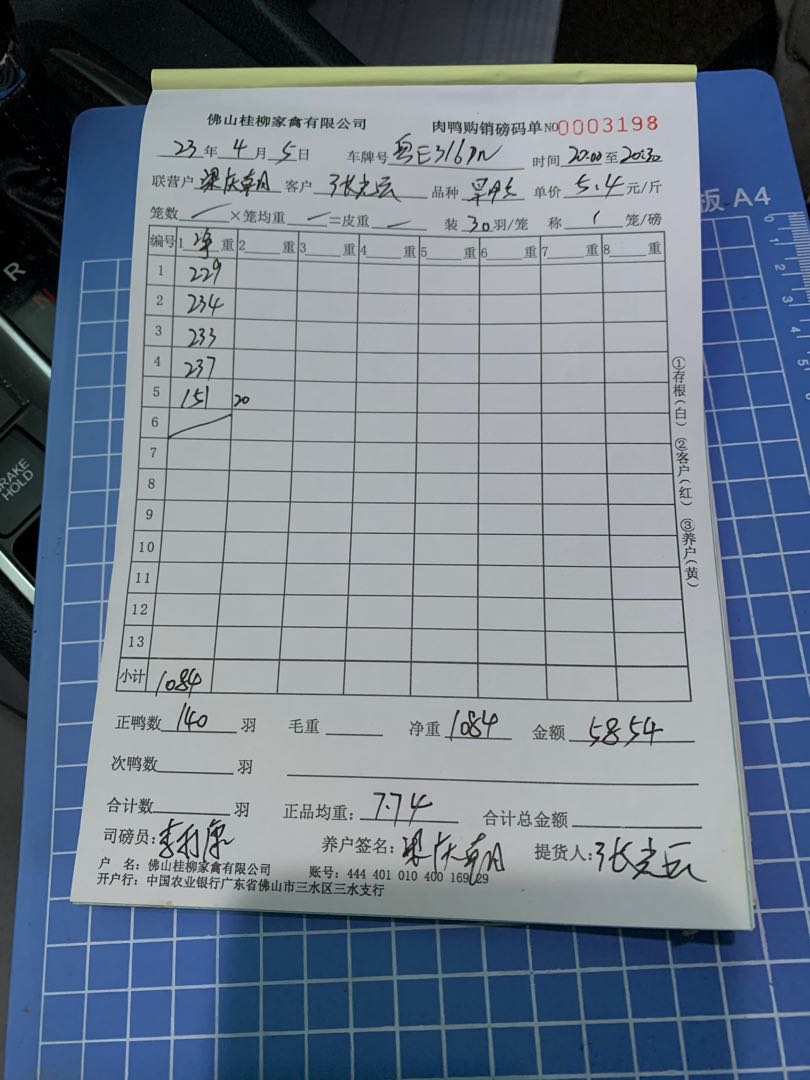 佛山桂柳家禽有限公司 肉鸭购销磅码单 NO 0003198
23年4月5日 车牌号 粤E316DN 时间 20:00至20:30
联营户 梁庆朝 客户 张光云 品种 单价 5.4 元/斤
笼数 / ×笼均重 / =皮重 / 装 30 羽/笼 称 1 笼/磅
编号 1 净 重 2 重 3 重 4 重 5 重 6 重 7 重 8 重
1 229
2 234
3 233
4 237
5 151 20
6
7
8
9
10
11
12
13
小计 1084
正鸭数 140 羽 毛重 净重 1084 金额 5854
次鸭数 羽
合计数 羽 正品均重: 7.74 合计总金额
司磅员: 养户签名: 梁庆朝 提货人: 张光云
户 名: 佛山桂柳家禽有限公司 账号: 444 401 010 400 169 29
开户行: 中国农业银行广东省佛山市三水区三水支行
①存根(白) ②客户(红) ③养户(黄)
板 A4
0
1
2
3
4
5
R
N
BRAKE
HOLD